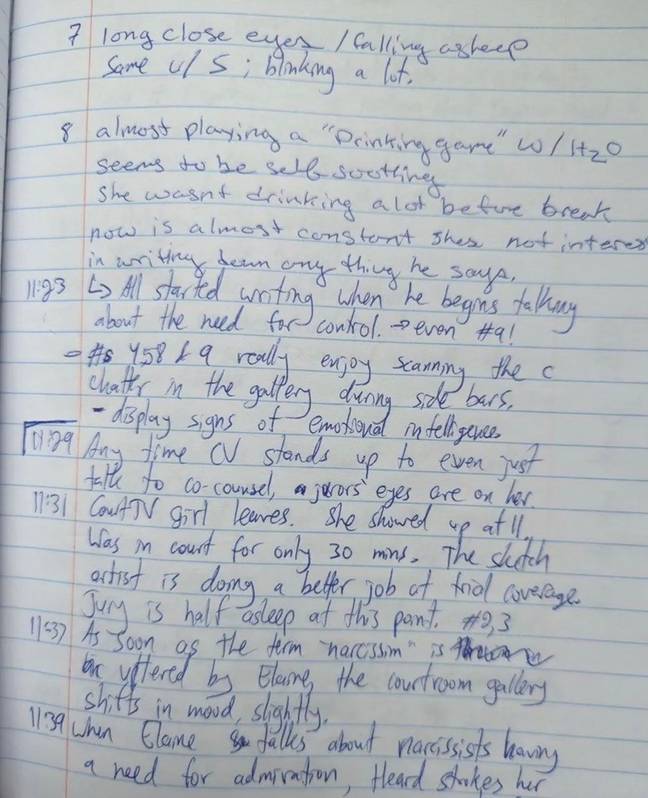 7 long close eyes / falling asleep
same w/ 5 ; blinking a lot.
8 almost playing a "Drinking game" w/ H2O
seems to be self sootting
she wasnt drinking a lot before break
now is almost constant shes not interes
in writing down any thing he says.
11:23 ↳ All started writing when he begins talking
about the need for control. → even #9!
- #s 4,5,8 & 9 really enjoy scanning the c
chatter in the gallery during side bars.
- display signs of emotional intelligence
11:29 Any time CV stands up to even just
talk to co-counsel, jurors' eyes are on her.
11:31 CourtTV girl leaves. She showed up at 11.
Was in court for only 30 mins. The sketch
artist is doing a better job at trial coverage.
Jury is half asleep at this point. #2,3
11:37 As soon as the term "narcissim" is
uttered by Elaine, the courtroom gallery
shifts in mood, slightly.
11:39 When Elaine talks about narcissists having
a need for admiration, Heard strokes her